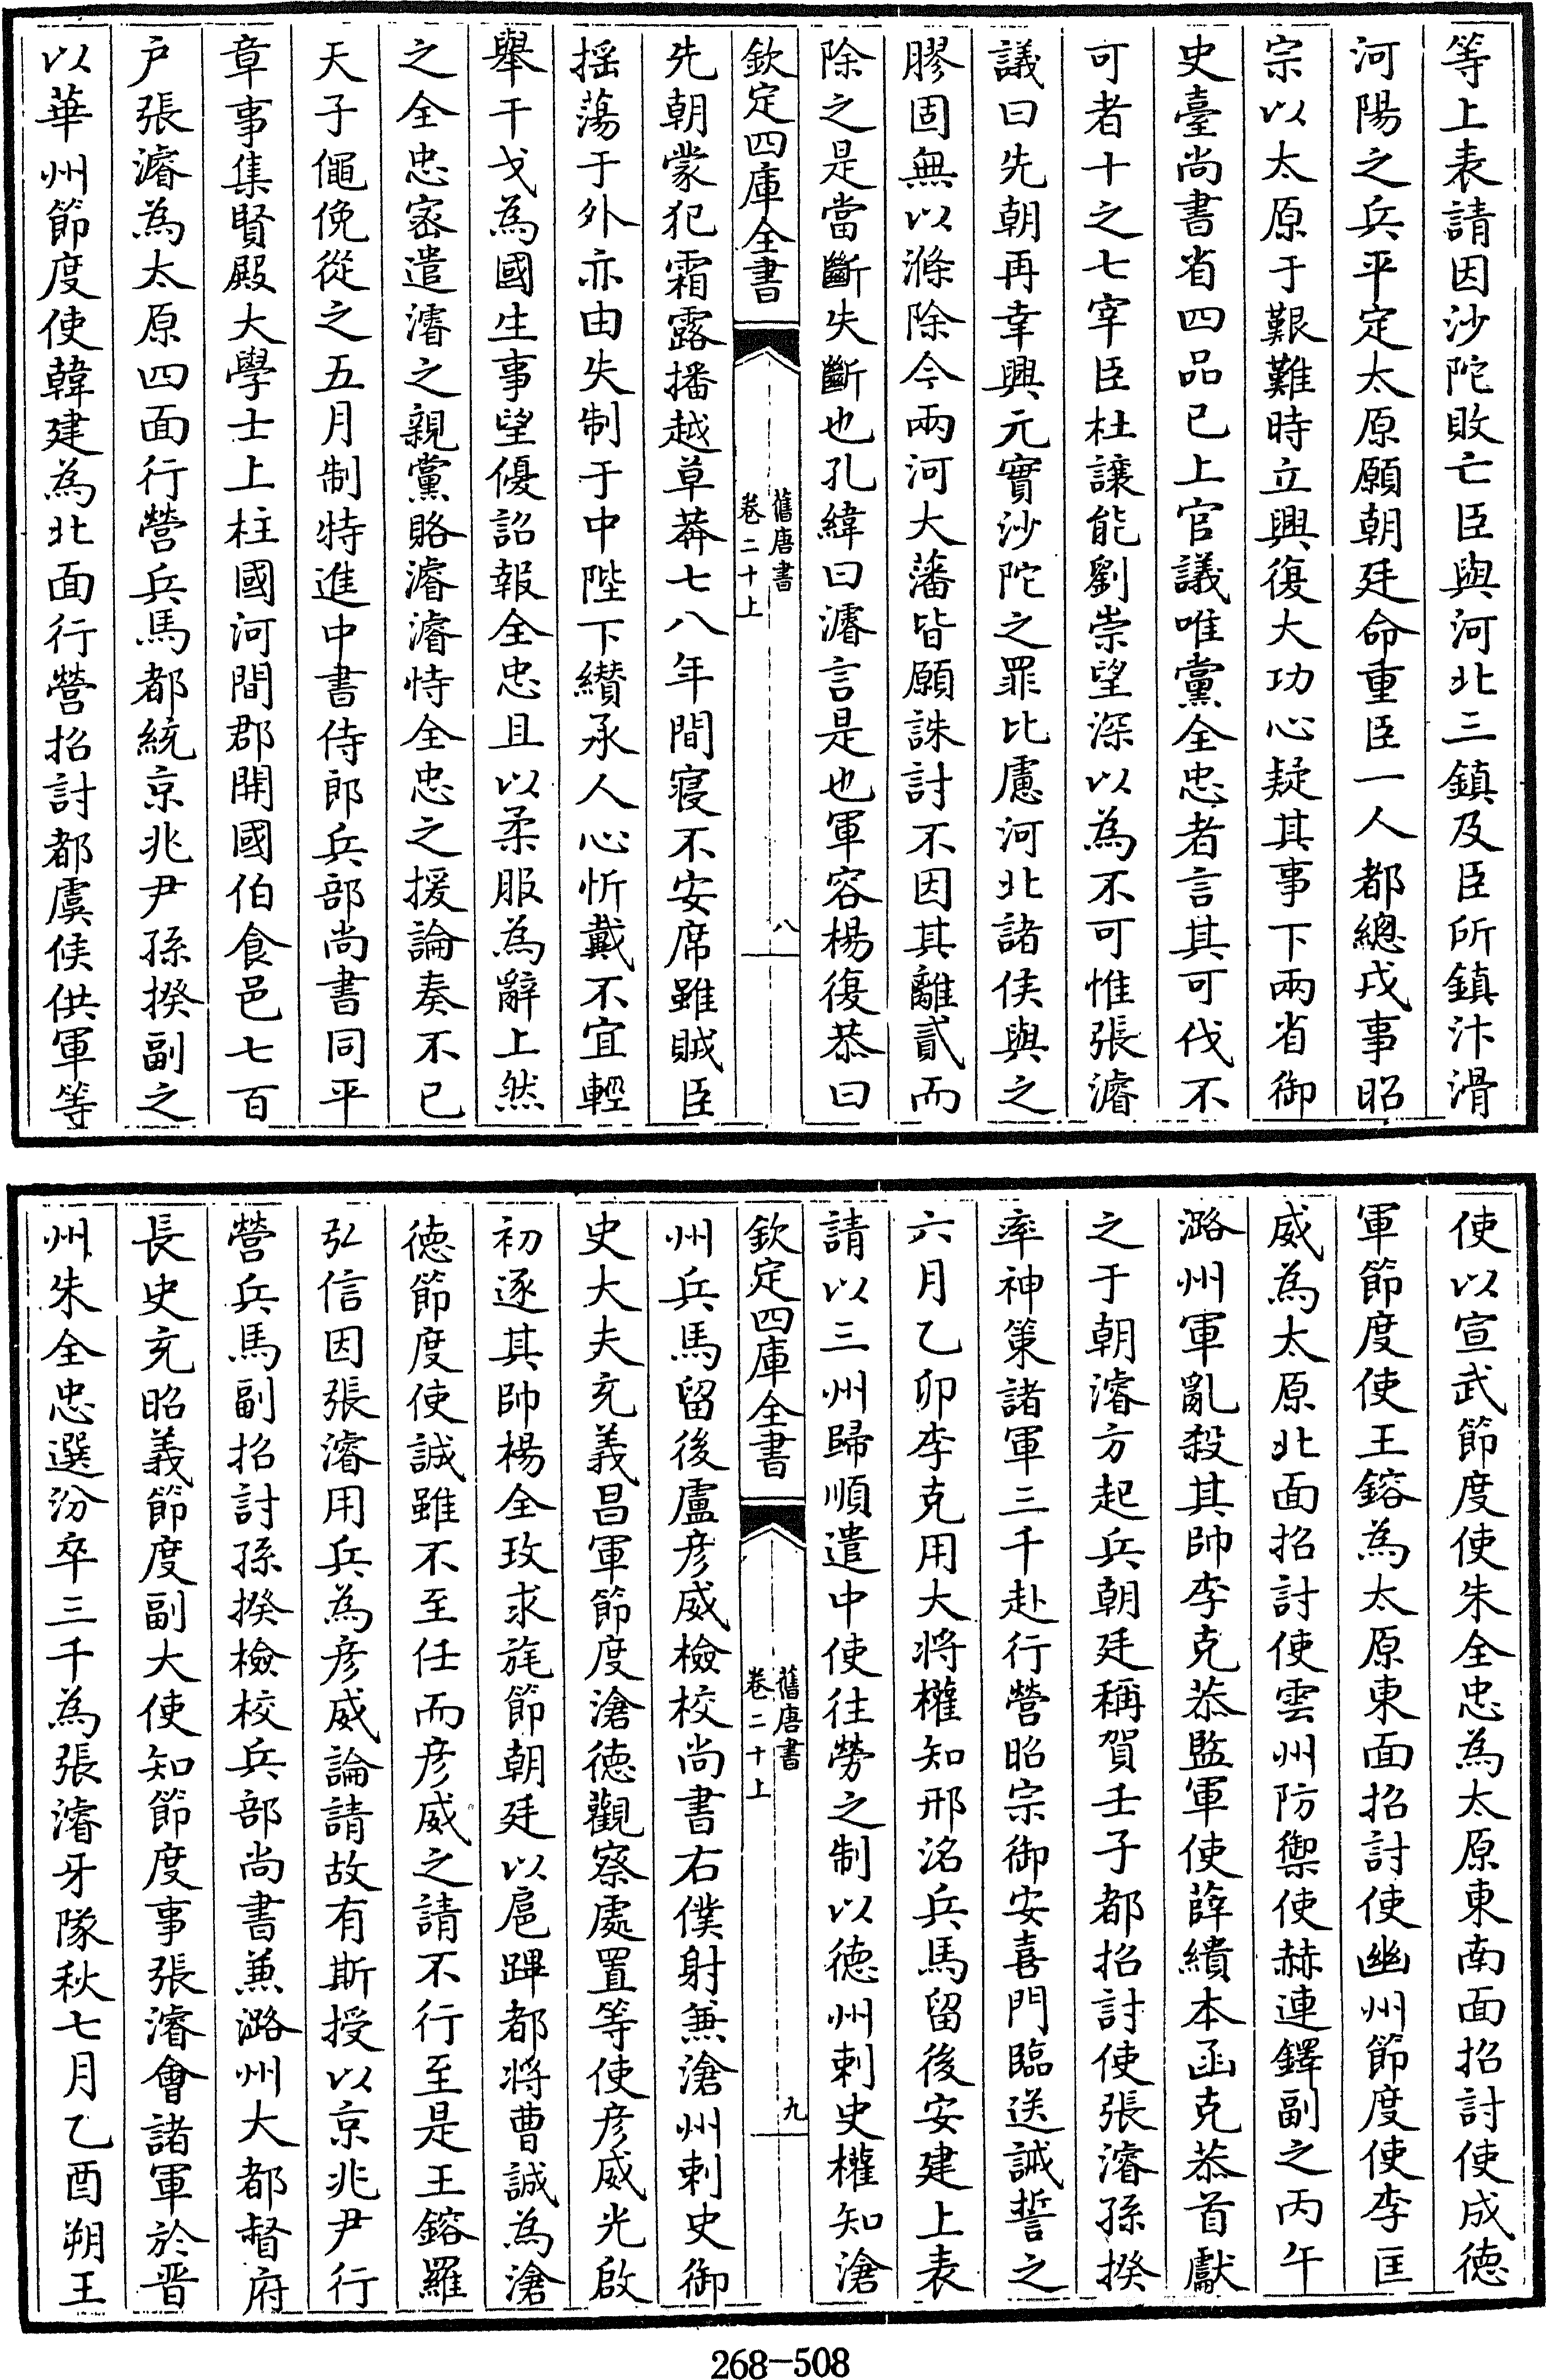 等上表請因沙陀敗亡臣與河北三鎮及臣所鎮汴滑
河陽之兵平定太原願朝廷命重臣一人都總戎事昭
宗以太原于艱難時立興復大功心疑其事下兩省御
史臺尚書省四品已上官議唯黨全忠者言其可伐不
可者十之七宰臣杜讓能劉崇望深以為不可惟張濬
議曰先朝再幸興元實沙陀之罪比慮河北諸侯與之
膠固無以滌除今兩河大藩皆願誅討不因其離貳而
除之是當斷失斷也孔緯曰濬言是也軍容楊復恭曰
欽定四庫全書
舊唐書
卷二十上
八
先朝蒙犯霜露播越草莽七八年間寢不安席雖賊臣
搖蕩于外亦由失制于中陛下纉承人心忻戴不宜輕
舉干戈為國生事望優詔報全忠且以柔服為辭上然
之全忠密遣濬之親黨賂濬濬恃全忠之援論奏不已
天子僶俛從之五月制特進中書侍郎兵部尚書同平
章事集賢殿大學士上柱國河間郡開國伯食邑七百
户張濬為太原四面行營兵馬都統京兆尹孫揆副之
以華州節度使韓建為北面行營招討都虞候供軍等
使以宣武節度使朱全忠為太原東南面招討使成德
軍節度使王鎔為太原東面招討使幽州節度使李匡
威為太原北面招討使雲州防禦使赫連鐸副之丙午
潞州軍亂殺其帥李克恭監軍使薛繢本函克恭首獻
之于朝濬方起兵朝廷稱賀壬子都招討使張濬孫揆
率神策諸軍三千赴行營昭宗御安喜門臨送誡誓之
六月乙卯李克用大將權知邢洺兵馬留後安建上表
請以三州歸順遣中使往勞之制以德州刺史權知滄
欽定四庫全書
舊唐書
卷二十上
九
州兵馬留後盧彦威檢校尚書右僕射兼滄州刺史御
史大夫充義昌軍節度滄德觀察處置等使彦威光啟
初逐其帥楊全玫求旄節朝廷以扈蹕都將曹誠為滄
德節度使誠雖不至任而彦威之請不行至是王鎔羅
弘信因張濬用兵為彦威論請故有斯授以京兆尹行
營兵馬副招討孫揆檢校兵部尚書兼潞州大都督府
長史充昭義節度副大使知節度事張濬會諸軍於晋
州朱全忠選汾卒三千為張濬牙隊秋七月乙酉朔王
268-508